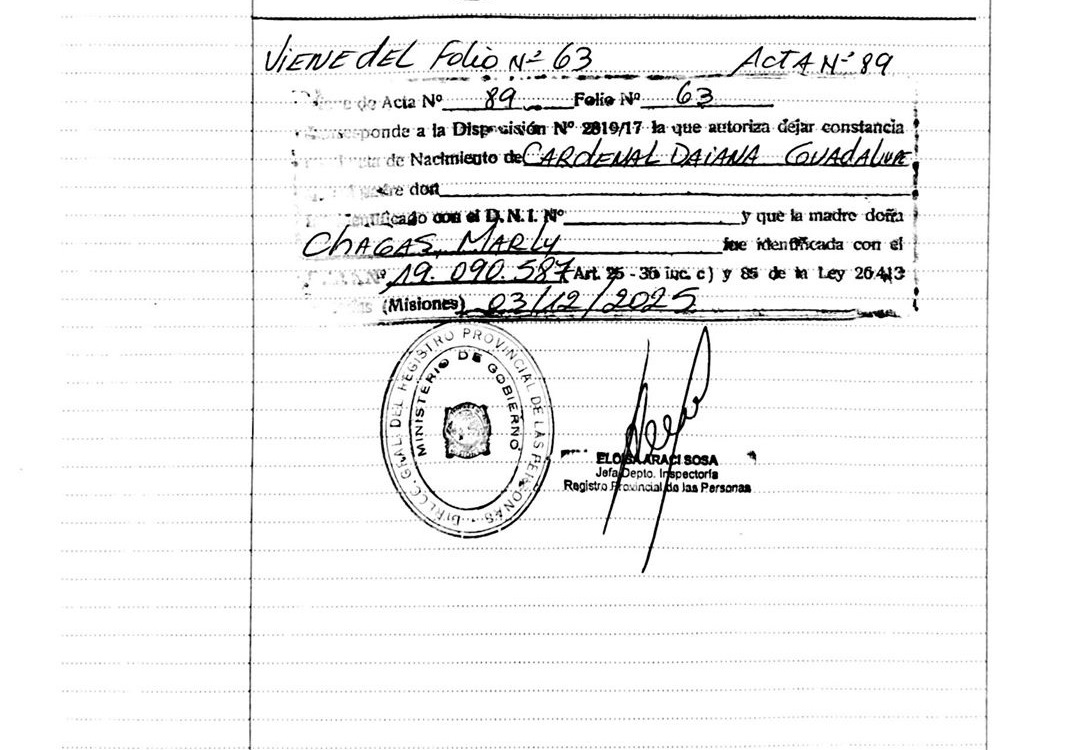 VIENE DEL Folio Nº 63 ACTA Nº 89
de Acta Nº 89 Folio Nº 63
a la Disposisión Nº 2819/17 la que autoriza dejar constancia
de Nacimiento de CARDENAL DAIANA GUADALUPE
don
con el D.N.I. Nº y que la madre doña
CHAGAS, MARLY fue identificada con el
Nº 19.090.587 Art. 25 - 36 inc. c) y 85 de la Ley 26413
(Misiones) 03/12/2025
DIRECC. GRAL. DEL REGISTRO PROVINCIAL DE LAS PERSONAS
MINISTERIO DE GOBIERNO
ELOISA ARACI SOSA
Jefa Depto. Inspectoría
Registro Provincial de las Personas